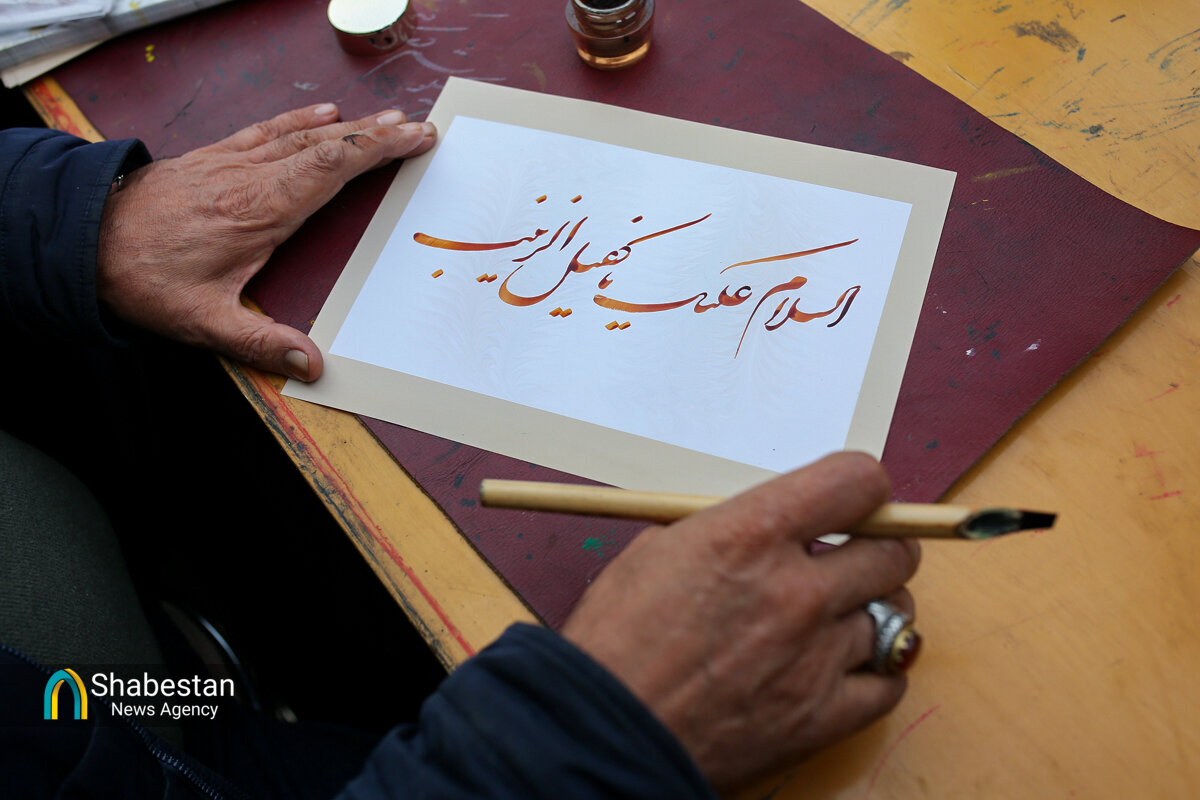 السلام علیک یا کفیل الزینب
Shabestan
News Agency